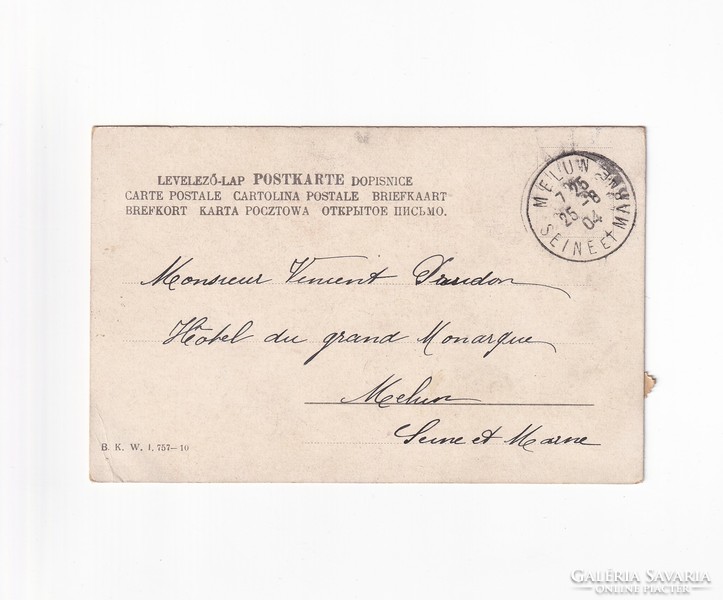 LEVELEZŐ-LAP POSTKARTE DOPISNICE
CARTE POSTALE CARTOLINA POSTALE BRIEFKAART
BREFKORT KARTA POCZTOWA ОТКРЫТОЕ ПИСЬМО.
MELUN
25 -8
04
SEINE ET MARNE
Monsieur Vincent
Hôtel du grand Monarque
Melun
Seine et Marne
B. K. W. I. 757—10
GALÉRIA SAVARIA
ONLINE PIACTÉR